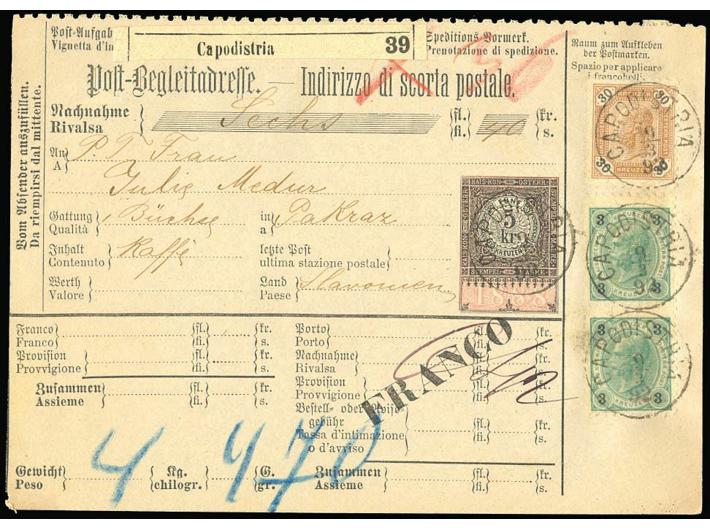 Post-Aufgab
Vignetta d'in
Capodistria
39
Speditions-Vormerk.
Prenotazione di spedizione.
Raum zum Aufkleben
der Postmarken.
Spazio per applicare
i francobolli
Post-Begleitadresse. — Indirizzo di scorta postale.
Vom Absender auszufüllen.
Da riempirsi dal mittente.
Nachnahme
Rivalsa
Sechs
fl. 40 kr.
fi. s.
An
A
P. T. Frau
Julie Medur
Gattung
Qualità
Büchse
in
a
Pakraz
Inhalt
Contenuto
Kaffè
letzte Post
ultima stazione postale
Werth
Valore
Land
Paese
Slavonien
5
kr.
KREUZER
1888
30
30
30
KREUZER
CAPODISTRIA
3
3
CAPODISTRIA
3
3
CAPODISTRIA
CAPODISTRIA
Franco fl. kr.
Franco fi. s.
Provision fl. kr.
Provvigione fi. s.
Zusammen fl. kr.
Assieme fi. s.
Porto fl. kr.
Porto fi. s.
Nachnahme fl. kr.
Rivalsa fi. s.
Provision fl. kr.
Provvigione fi. s.
Bestell- oder
gebühr fl. kr.
Tassa d'intimazione
o d'avviso fi. s.
FRANCO
Gewicht Kg. G.
Peso chilogr. gr.
4 470
Zusammen fl. kr.
Assieme fi. s.